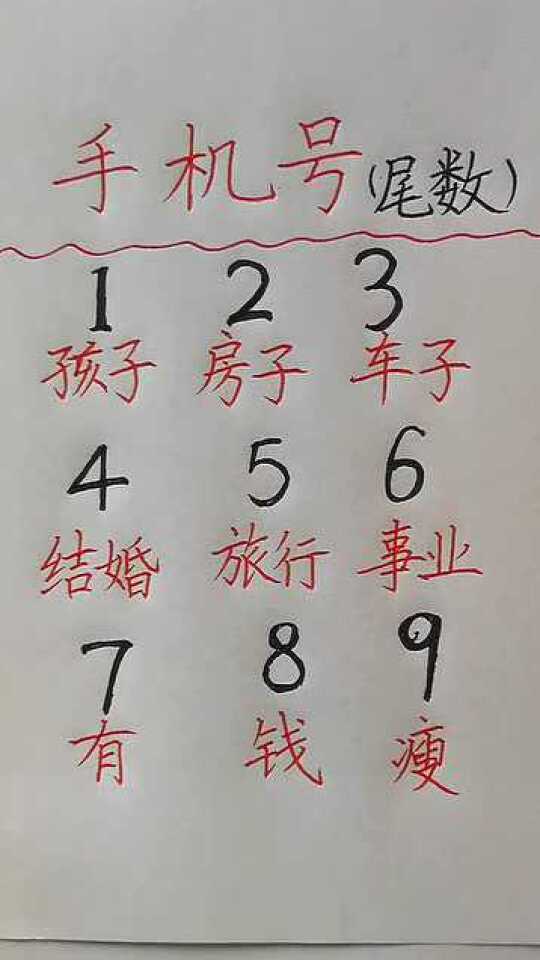 手机号(尾数)
1 2 3
孩子 房子 车子
4 5 6
结婚 旅行 事业
7 8 9
有 钱 瘦